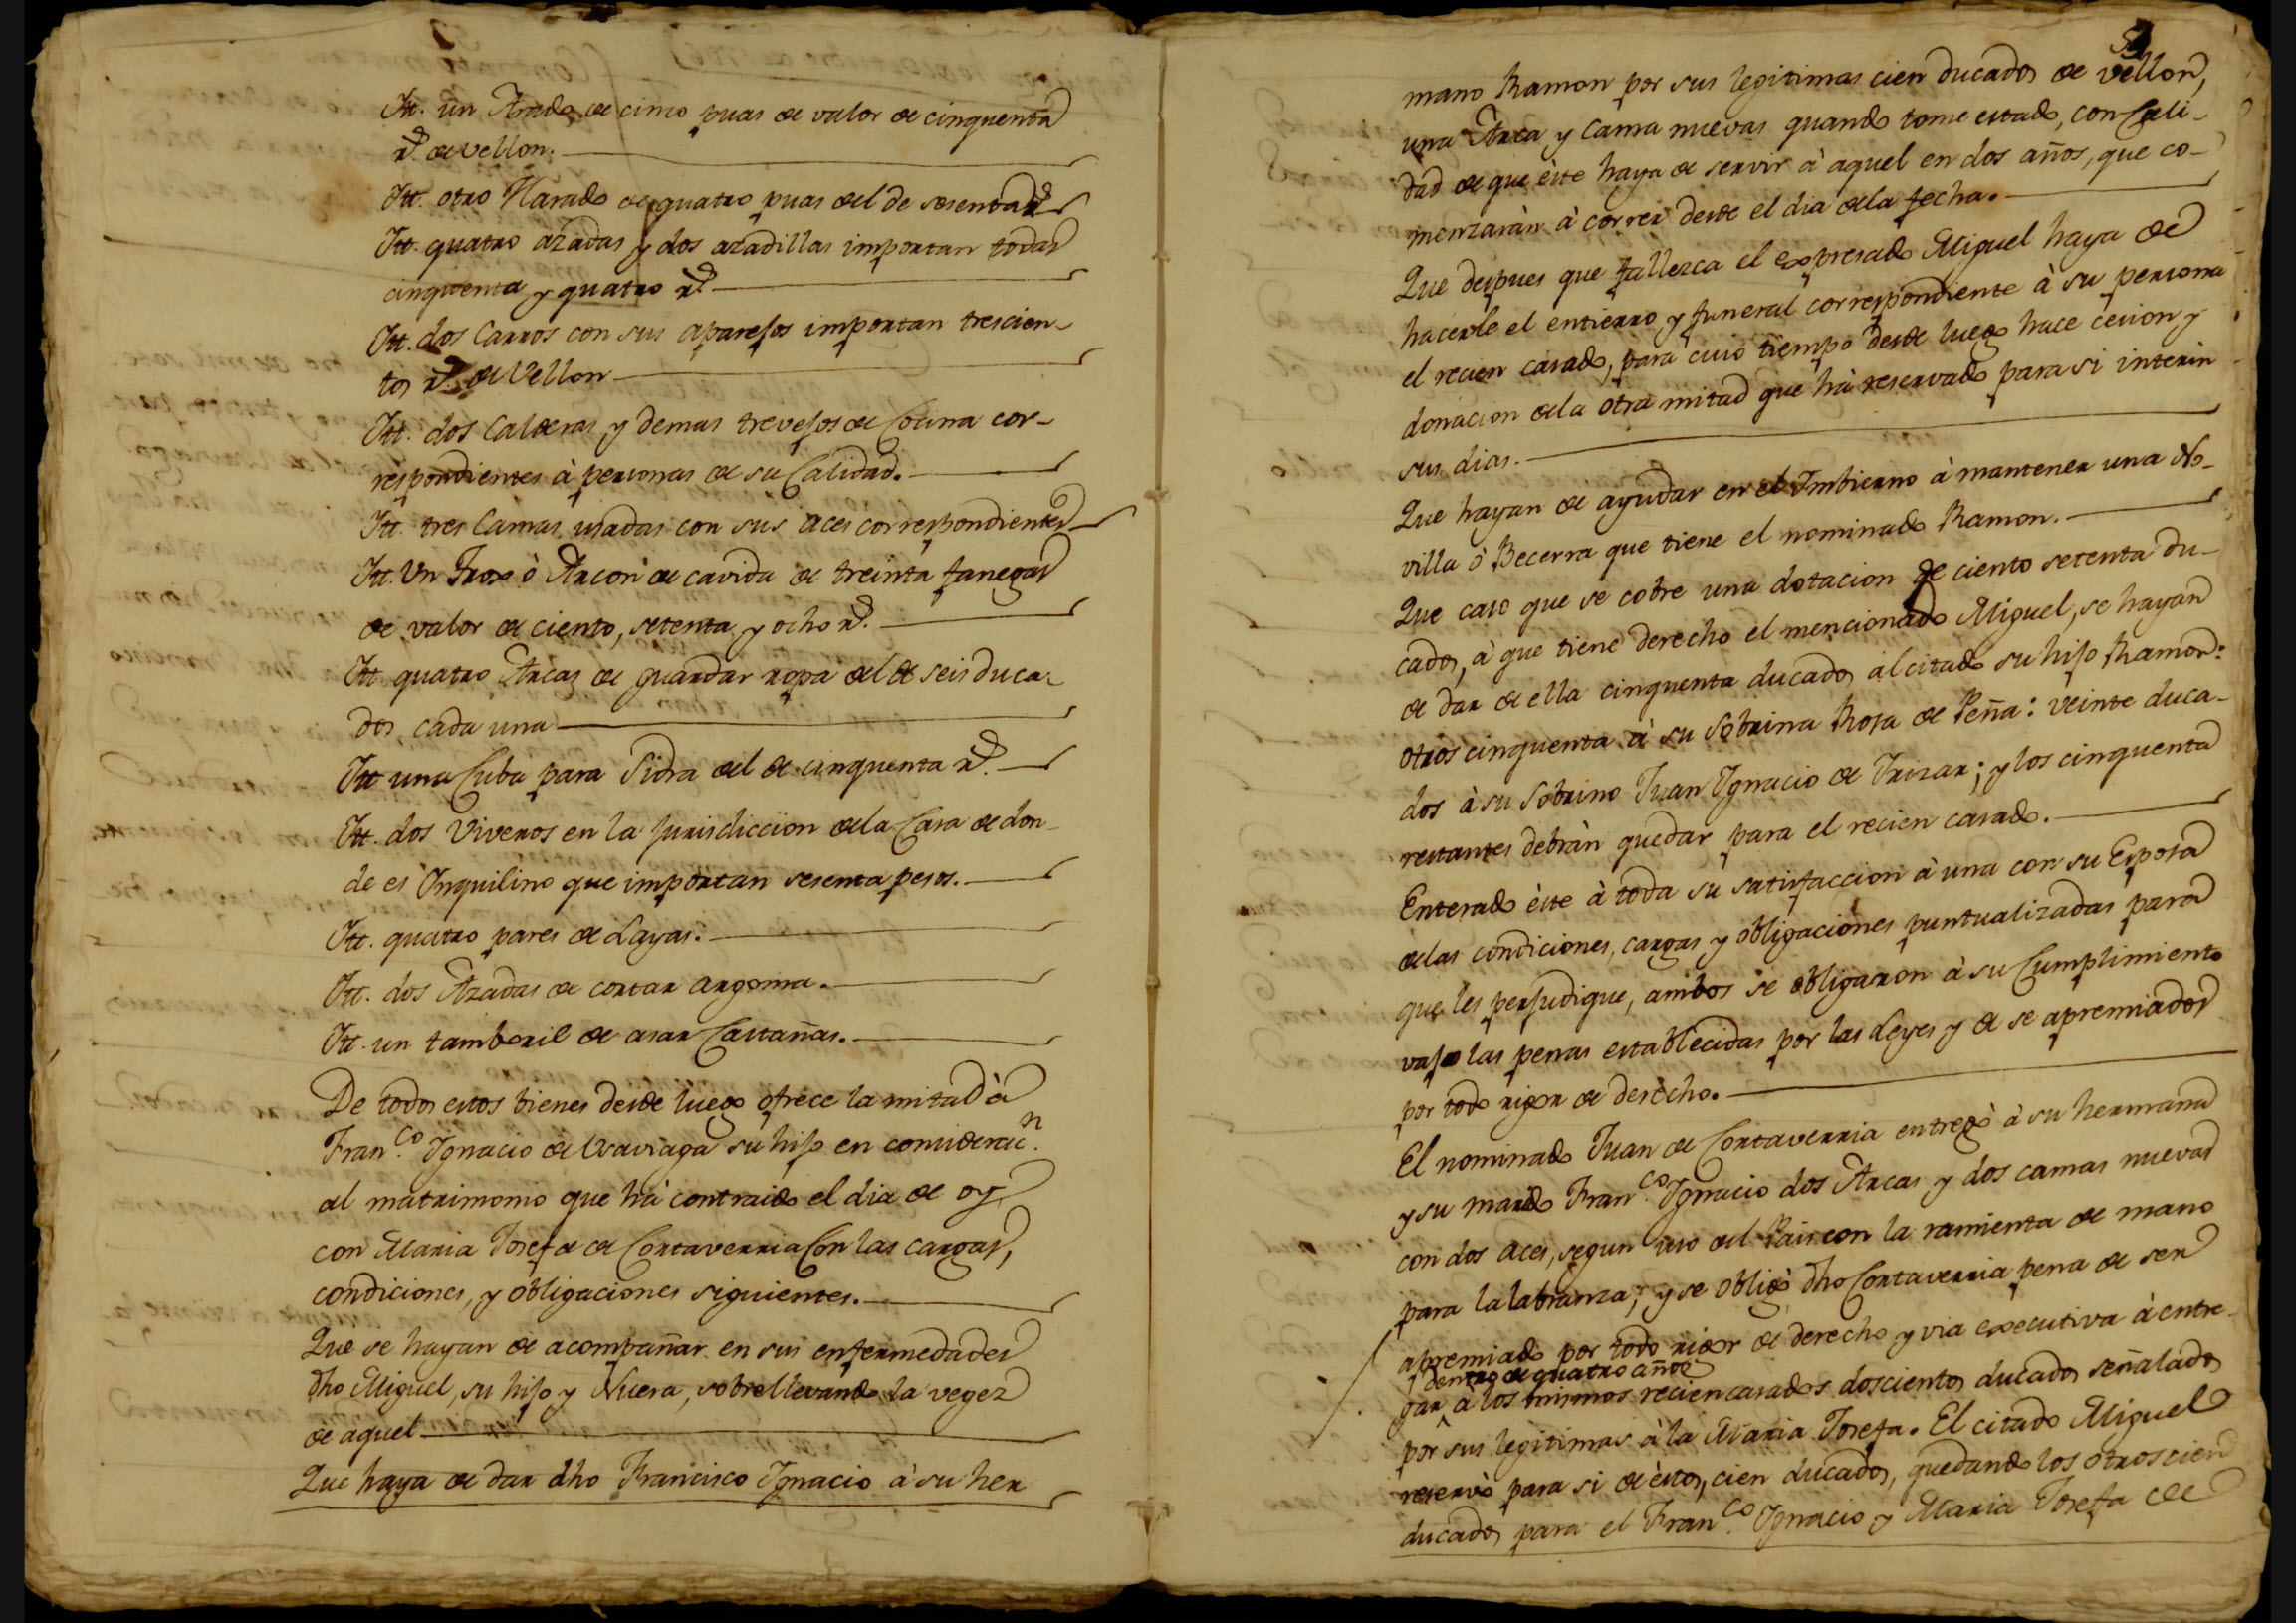 Itt. un Arado de cinco puas de valor de cinquenta
rs. de vellon.
Itt. otro Harado de quatro puas del de sesenta rs.
Itt. quatro azadas y dos azadillas importan todas
cinquenta y quatro rs.
Itt. dos Carros con sus aparejos importan trescien-
tos rs. de Vellon
Itt. dos Calderas y demas trevejos de Cocina cor-
respondientes à personas de su Calidad.
Itt. tres Camas usadas con sus aces correspondientes
Itt. Vn Trox ò Arcon de cavida de treinta fanegas
de valor de ciento, setenta, y ocho rs.
Itt. quatro Arcas de guardar ropa del de seis duca-
dos cada una
Itt una Cuba para Sidra del de cinquenta rs.
Itt. dos Viveros en la Jurisdiccion dela Casa de don-
de es Ynquilino que importan sesenta pesos.
Itt. quatro pares de Layas.
Itt. dos Azadas de cortar argoma.
Itt. un tamboril de asar Castañas.
De todos estos bienes desde luego ofrece la mitad à
Fran.co Ygnacio de Usaviaga su hijo en considerac.n
al matrimonio que hà contraido el dia de oy
con Maria Josefa de Cortaverria Con las cargas,
condiciones, y obligaciones siguientes.
Que se hayan de acompañar en sus enfermedades
dho Miguel, su hijo y Nuera, sobrellevando la vegez
de aquel
Que haya de dar dho Francisco Ygnacio à su her
mano Ramon por sus legitimas cien ducados de vellon,
una Arca y Cama nuevas quando tome estado, con Cali-
dad de que èste haya de servir à aquel en dos años, que co-
menzaràn à correr desde el dia dela fecha.
Que despues que fallezca el expresado Miguel haya de
hacerle el entierro y funeral correspondiente à su persona
el recien casado, para cuio tiempo desde luego hace cesion y
donacion dela otra mitad que hà reservado para si interin
sus dias.
Que hayan de ayudar en el Imbierno à mantener una No-
villa ò Becerra que tiene el nominado Ramon.
Que caso que se cobre una dotacion de ciento setenta du-
cados, à que tiene derecho el mencionado Miguel, se hayan
de dar de ella cinquenta ducados al citado su hijo Ramon:
otros cinquenta à su Sobrina Rosa de Peña: veinte duca-
dos à su Sobrino Juan Ygnacio de Yrizar; y los cinquenta
restantes debràn quedar para el recien casado.
Enterado èste à toda su satisfaccion à una con su Esposa
delas condiciones, cargas y obligaciones puntualizadas para
que les perjudique, ambos se obligaron à su Cumplimiento
vajo las penas establecidas por las Leyes y de se apremiados
por todo rigor de derecho.
El nominado Juan de Cortaverria entregò à su hermana
y su marido Fran.co Ygnacio dos Arcas y dos camas nuevas
con dos aces, segun uso del Pais con la ramienta de mano
para la labranza; y se obligò dho Cortaverria pena de ser
apremiado por todo rigor de derecho y via executiva à entre-
dentro de quatro años
gar à los mismos recien casados doscientos ducados señalados
por sus legitimas à la Maria Josefa. El citado Miguel
reservò para si de èstos, cien ducados, quedando los otros cien
ducados para el Fran.co Ygnacio y Maria Josefa de